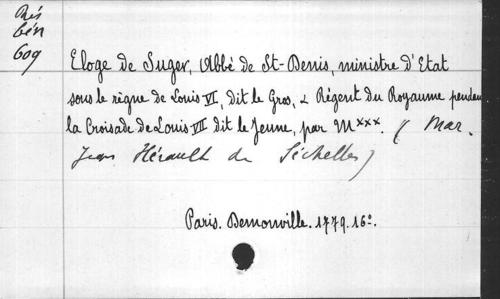 Rés
bén
609
Eloge de Suger, Abbé de St-Denis, ministre d'Etat
sous le règne de Louis VI, dit le Gros, & Régent du Royaume pendant
la Croisade de Louis VII dit le Jeune, par M xxx. (Mar.
Jean Hérault de Séchelles)
Paris. Demonville. 1779. 16º.